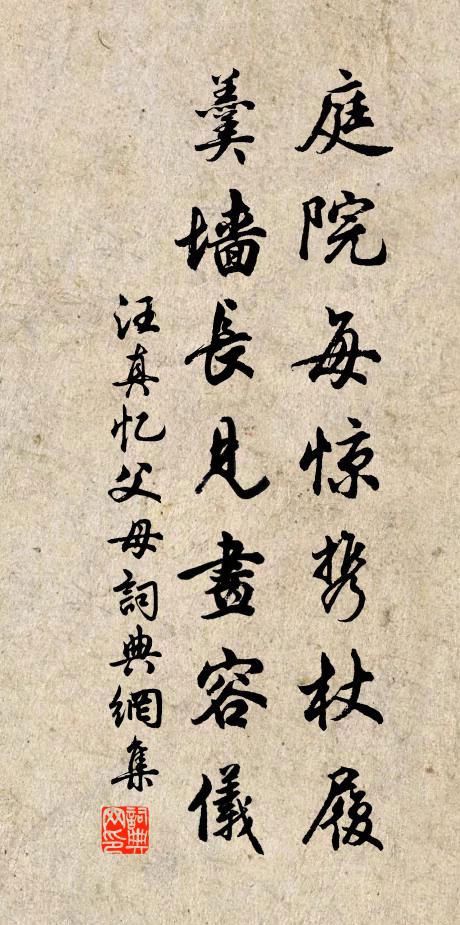 庭院每惊携杖履
羹墙長見畫容儀
汪真忆父母詞典網集
詞典网印